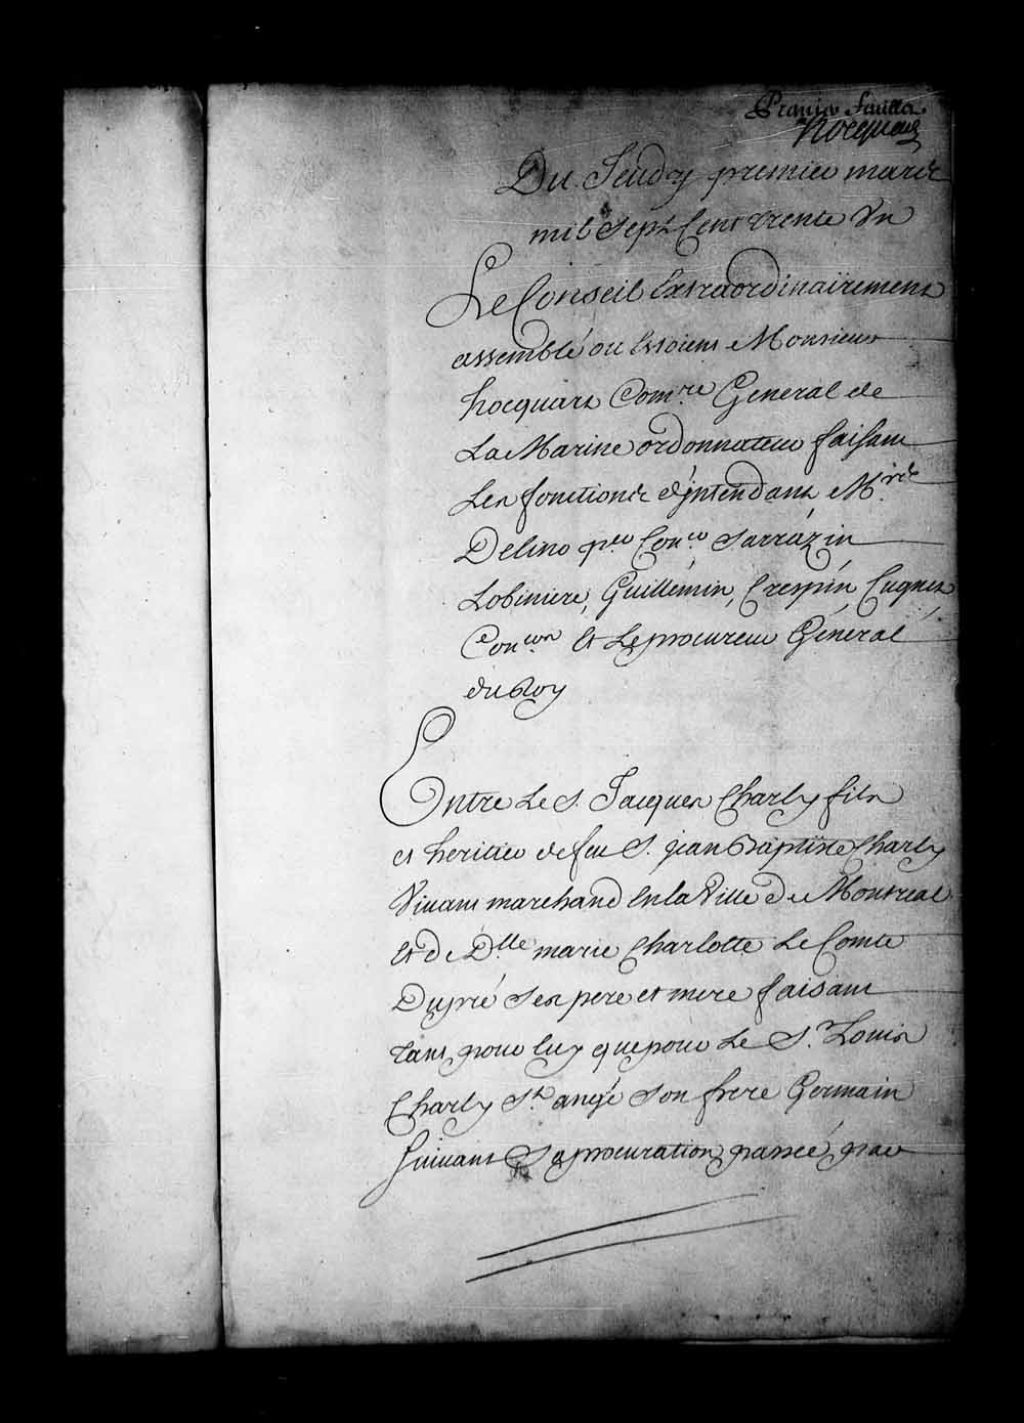 Premier feuillet
Hocquart
Du Jeudy premier mars
mil Sept Cent trente Un
Le Conseil Extraordinairement
assemblé ou Estoient Monsieur
hocquart Com.re General de
La Marine ordonnateur faisant
Les fonctions d'jntendant M.rs
Delino p.er Con.er Sarrazin
Lobiniere, Guillémin, Crespin, Cugnet
Con.ers Et Le procureur Général
du Roy
Entre Le S. Jacques Charly fils
et heritier defeu S. jean Baptiste Charly
Vivant marchand En la Ville De Montreal
Et de D.lle marie Charlotte Le Comte
Dupré Ses pere et mere faisant
tant pour luy que pour Le S.r Louis
Charly S.t angé Son frere Germain
Suivant Sa procuration passée par